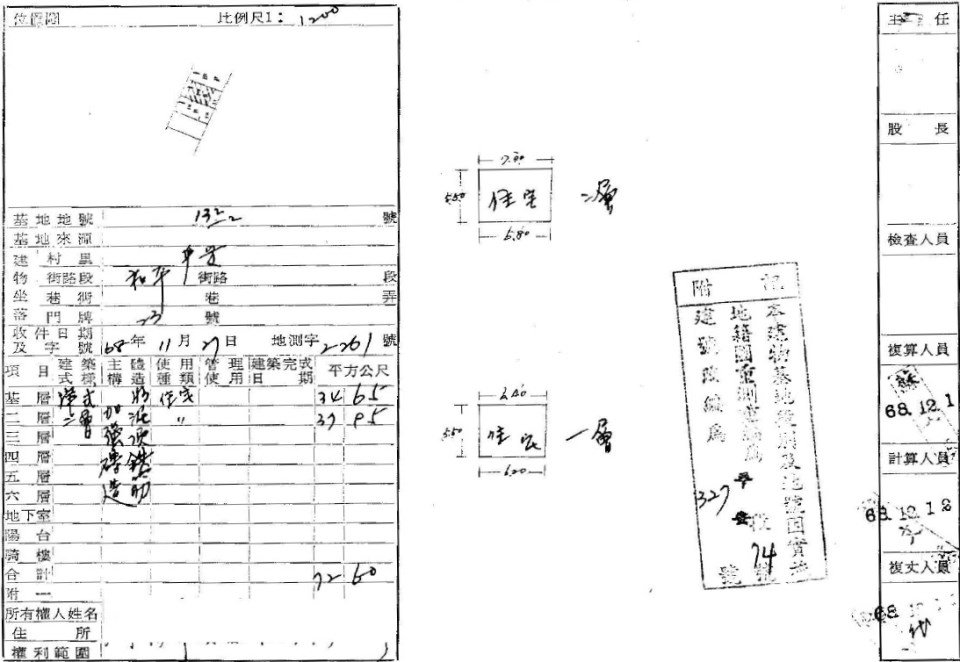 位置圖 比例尺1: 1200
基地地號 132-2 號
基地來源
建 村里
物 街路段 和平 街路 段
坐 巷衖 巷 弄
落 門牌 23 號
收件日期及字號 68年11月27日 地測字2261號
項目 建築式樣 主體構造 使用種類 管理使用 建築完成日期 平方公尺
基層 洋式 住宅 34 65
二層 二層 加混 〃 37 95
三層 強凝
四層 磚鐵
五層 造筋
六層
地下室
陽台
騎樓
合計 72 60
附一
所有權人姓名
住所
權利範圍
5.50 住宅 二層
6.90
5.50 住宅 一層
6.30
附記
本建物基地段別及地號因實施
地籍圖重測
建號改編為
327 段 74
號
主任
股長
檢查人員
複算人員
68.12.1
計算人員
68.12.12
複丈人員
68.
代